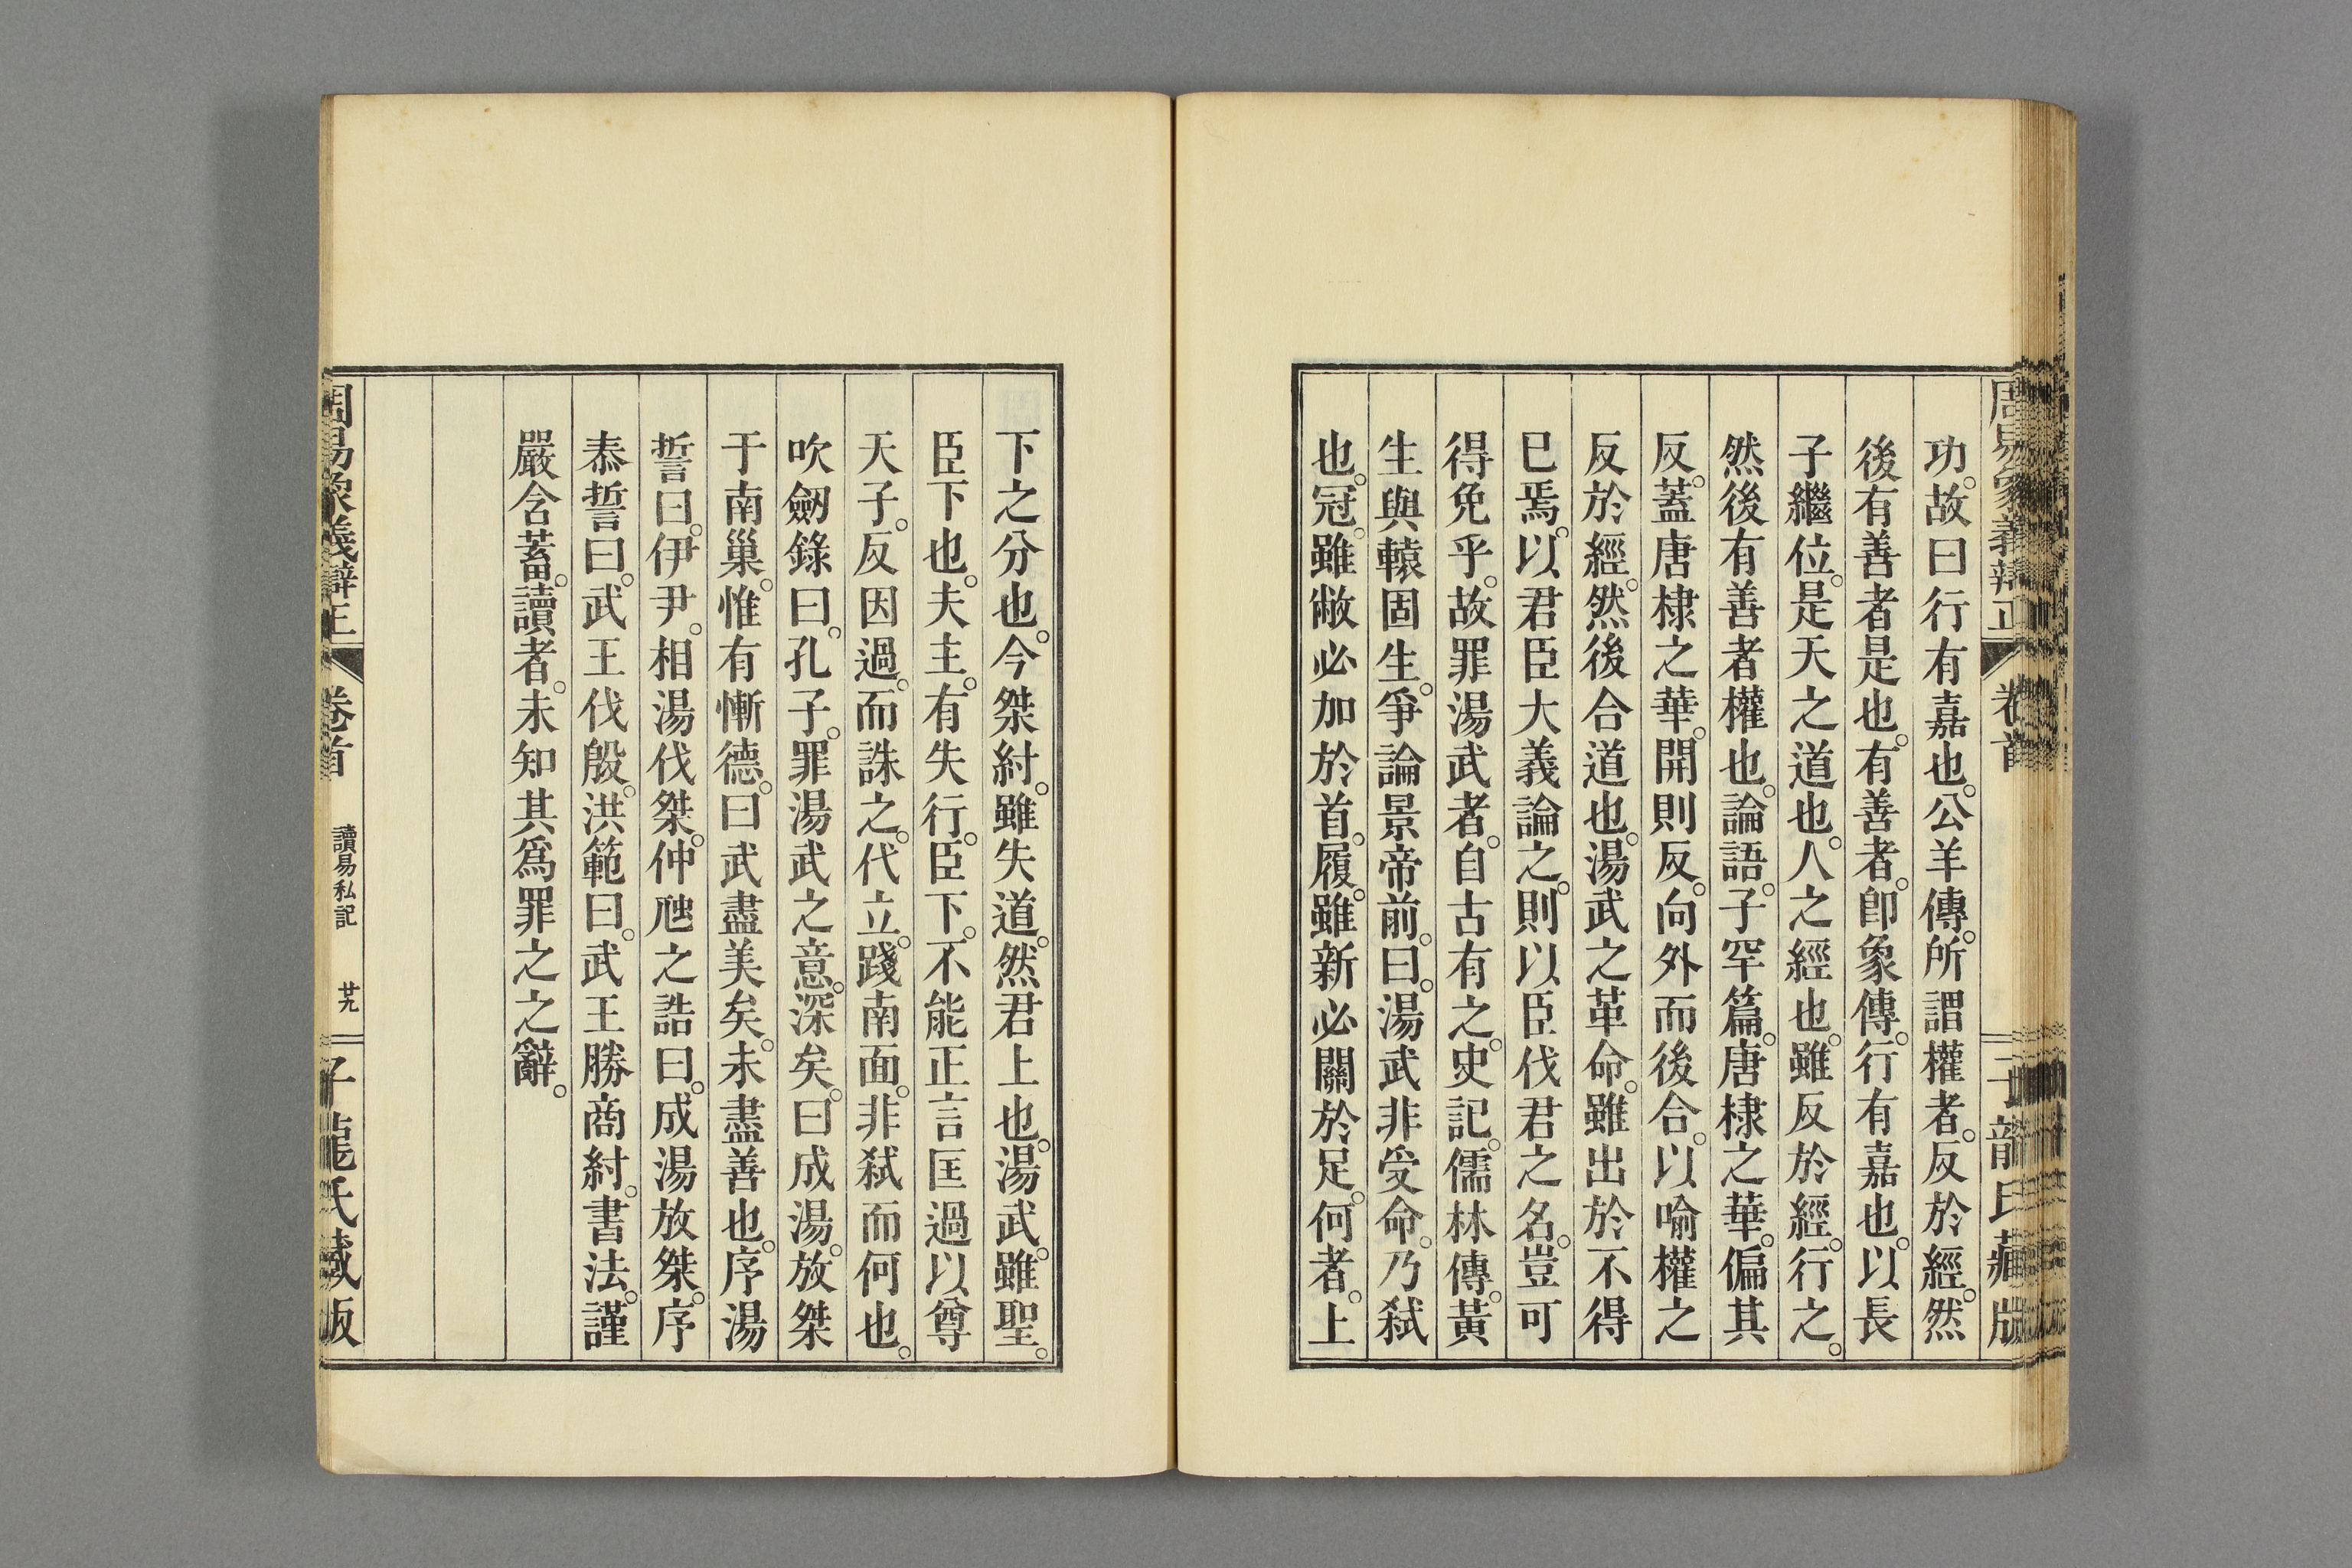 周易象義辯正
卷首
子龍氏藏版
功。故曰行有嘉也。公羊傳。所謂權者。反於經。然
後有善者是也。有善者。卽象傳。行有嘉也。以長
子繼位。是天之道也。人之經也。雖反於經。行之。
然後有善者權也。論語。子罕篇。唐棣之華。偏其
反。蓋唐棣之華。開則反。向外而後合。以喻權之
反於經。然後合道也。湯武之革命。雖出於不得
已焉。以君臣大義論之。則以臣伐君之名。豈可
得免乎。故罪湯武者。自古有之。史記。儒林傳。黃
生與轅固生。爭論景帝前。曰。湯武非受命。乃弒
也。冠。雖敝必加於首。履。雖新必關於足。何者。上
下之分也。今桀紂。雖失道。然君上也。湯武。雖聖。
臣下也。夫主。有失行。臣下。不能正言匡過以尊
天子。反因過。而誅之。代立。踐南面。非弒而何也。
吹劒錄曰。孔子。罪湯武之意。深矣。曰成湯。放桀
于南巢。惟有慚德。曰武盡美矣。未盡善也。序湯
誓曰。伊尹。相湯伐桀。仲虺之誥曰。成湯放桀。序
泰誓曰。武王伐殷。洪範曰。武王勝商紂。書法。謹
嚴含蓄。讀者。未知其爲罪之之辭。
周易象義辯正
卷首
讀易私記
廿九
子龍氏藏版